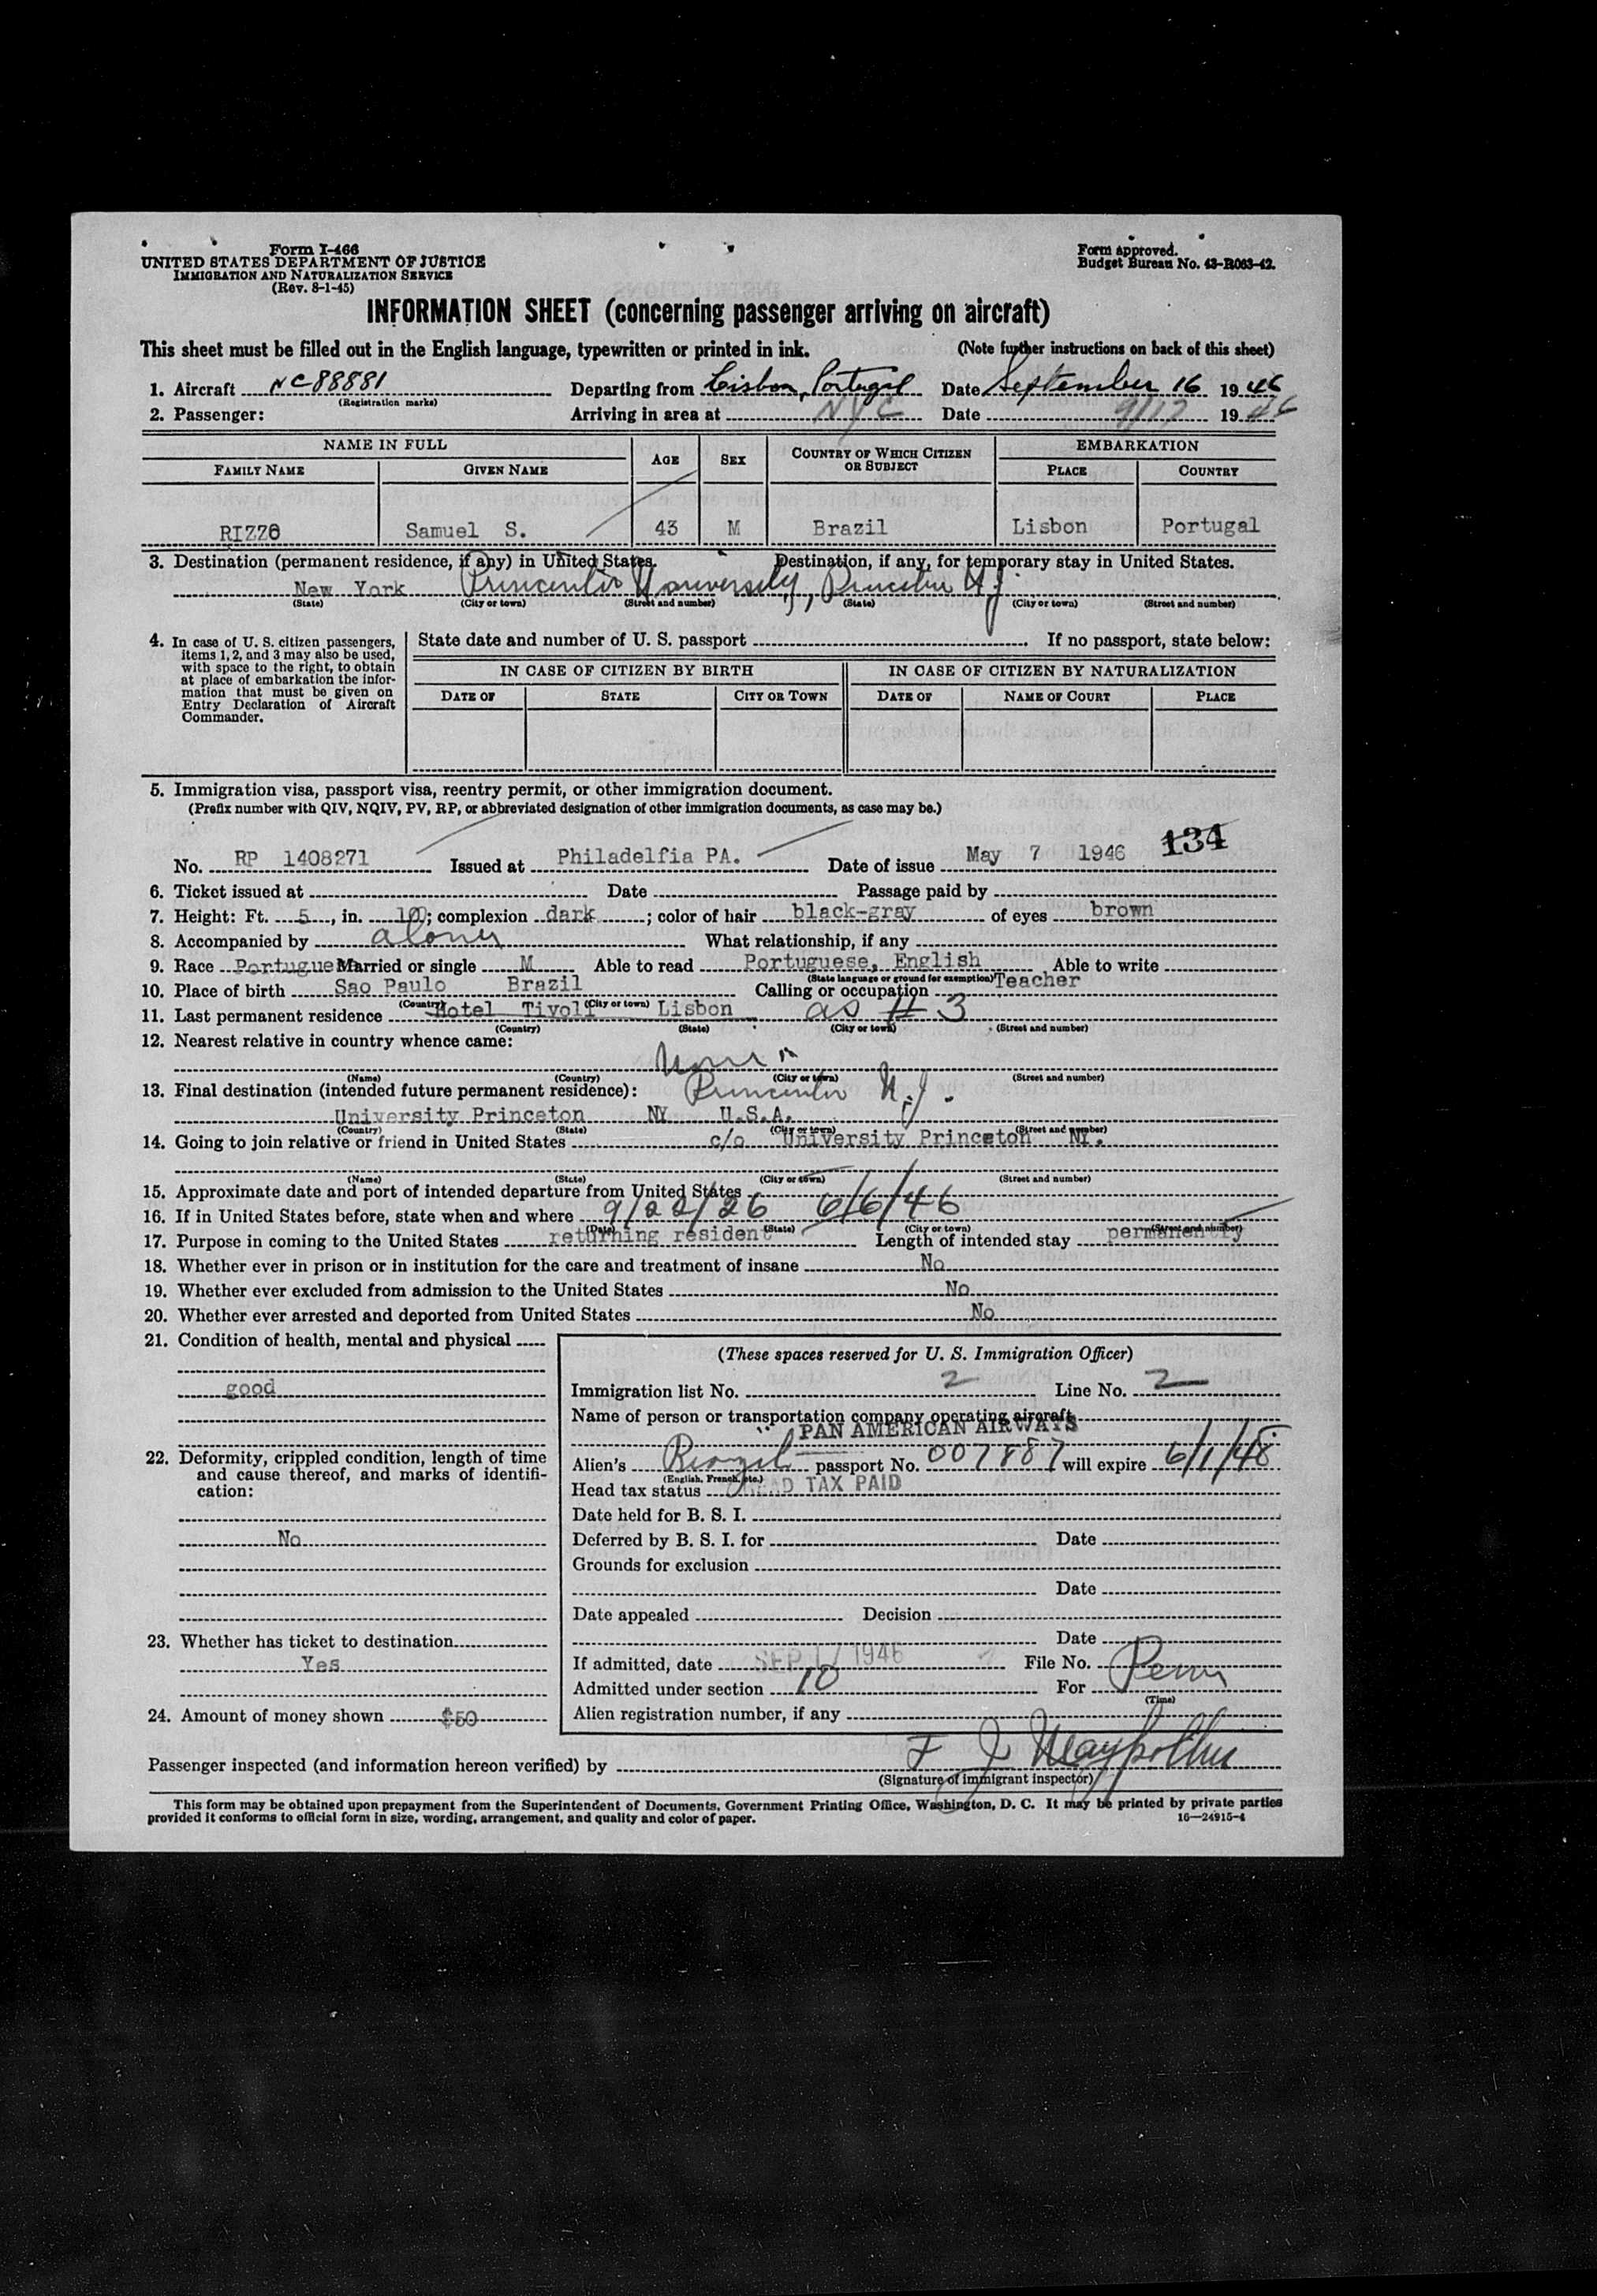 Form I-466
UNITED STATES DEPARTMENT OF JUSTICE
IMMIGRATION AND NATURALIZATION SERVICE
(Rev. 8-1-45)
Form approved.
Budget Bureau No. 43-R063-42.
INFORMATION SHEET (concerning passenger arriving on aircraft)
This sheet must be filled out in the English language, typewritten or printed in ink. (Note further instructions on back of this sheet)
1. Aircraft NC88881 Departing from Lisbon, Portugal Date September 16 1946
(Registration marks)
2. Passenger: Arriving in area at NYC Date 9/17 1946
NAME IN FULL AGE SEX COUNTRY OF WHICH CITIZEN OR SUBJECT EMBARKATION
FAMILY NAME GIVEN NAME PLACE COUNTRY
RIZZO Samuel S. 43 M Brazil Lisbon Portugal
3. Destination (permanent residence, if any) in United States. Destination, if any, for temporary stay in United States.
New York Princeton University, Princeton N.J.
(State) (City or town) (Street and number) (State) (City or town) (Street and number)
4. In case of U. S. citizen passengers, items 1, 2, and 3 may also be used, with space to the right, to obtain at place of embarkation the information that must be given on Entry Declaration of Aircraft Commander.
State date and number of U. S. passport If no passport, state below:
IN CASE OF CITIZEN BY BIRTH IN CASE OF CITIZEN BY NATURALIZATION
DATE OF STATE CITY OR TOWN DATE OF NAME OF COURT PLACE
5. Immigration visa, passport visa, reentry permit, or other immigration document.
(Prefix number with QIV, NQIV, PV, RP, or abbreviated designation of other immigration documents, as case may be.)
134
No. RP 1408271 Issued at Philadelfia PA. Date of issue May 7 1946
6. Ticket issued at Date Passage paid by
7. Height: Ft. 5, in. 10; complexion dark; color of hair black-gray of eyes brown
8. Accompanied by alone What relationship, if any
9. Race Portuguese Married or single M Able to read Portuguese, English Able to write
(State language or ground for exemption)
10. Place of birth Sao Paulo Brazil Calling or occupation Teacher
(Country) (City or town)
11. Last permanent residence Hotel Tivoli Lisbon as # 3
(Country) (State) (City or town) (Street and number)
12. Nearest relative in country whence came:
None
(Name) (Country) (City or town) (Street and number)
13. Final destination (intended future permanent residence): Princeton N.J.
University Princeton NY U.S.A.
(Country) (State) (City or town) (Street and number)
14. Going to join relative or friend in United States c/o University Princeton NY.
(Name) (State) (City or town) (Street and number)
15. Approximate date and port of intended departure from United States
16. If in United States before, state when and where 9/22/26 6/6/46
(Date) (State) (City or town) (Street and number)
17. Purpose in coming to the United States returning resident Length of intended stay permanently
18. Whether ever in prison or in institution for the care and treatment of insane No
19. Whether ever excluded from admission to the United States No
20. Whether ever arrested and deported from United States No
21. Condition of health, mental and physical
good
22. Deformity, crippled condition, length of time and cause thereof, and marks of identification:
No
23. Whether has ticket to destination
Yes
24. Amount of money shown $50
(These spaces reserved for U. S. Immigration Officer)
Immigration list No. 2 Line No. 2
Name of person or transportation company operating aircraft
PAN AMERICAN AIRWAYS
Alien's Brazil passport No. 007887 will expire 6/1/48
(English, French, etc.)
Head tax status HEAD TAX PAID
Date held for B. S. I.
Deferred by B. S. I. for Date
Grounds for exclusion
Date
Date appealed Decision
Date
If admitted, date SEP 17 1946 File No.
Admitted under section 10 For Perm
(Time)
Alien registration number, if any
Passenger inspected (and information hereon verified) by F J
(Signature of immigrant inspector)
This form may be obtained upon prepayment from the Superintendent of Documents, Government Printing Office, Washington, D. C. It may be printed by private parties
provided it conforms to official form in size, wording, arrangement, and quality and color of paper. 16—24915-4